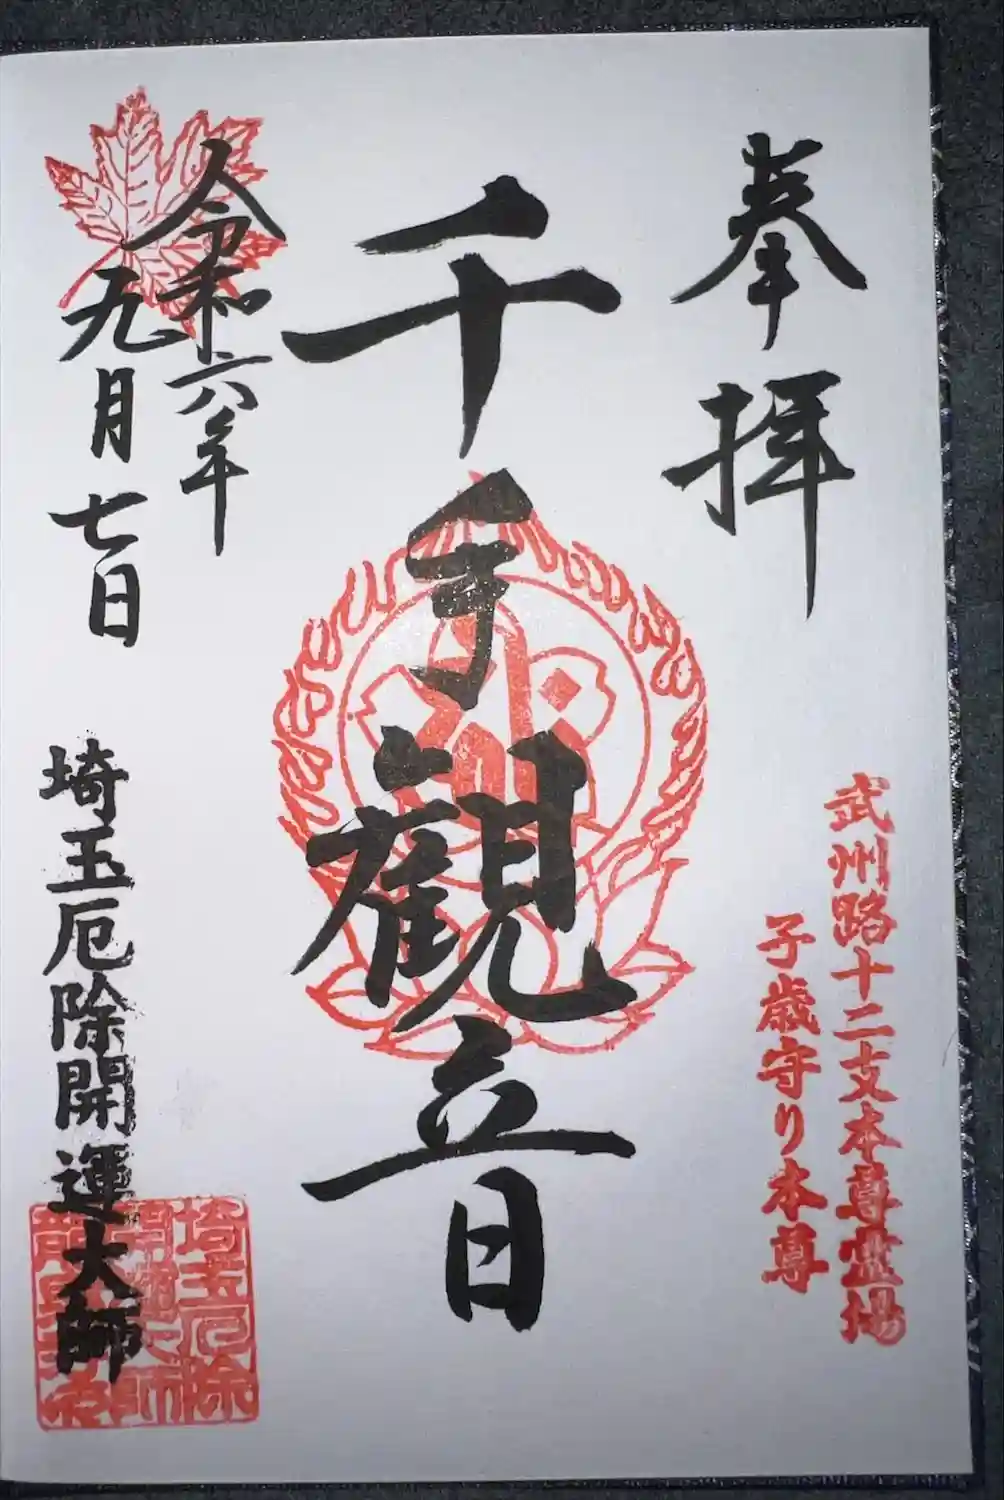 奉拝
武州路十二支本尊霊場
子歳守り本尊
千手観音
令和六年
九月七日
埼玉厄除開運大師
埼玉厄除
開運大師